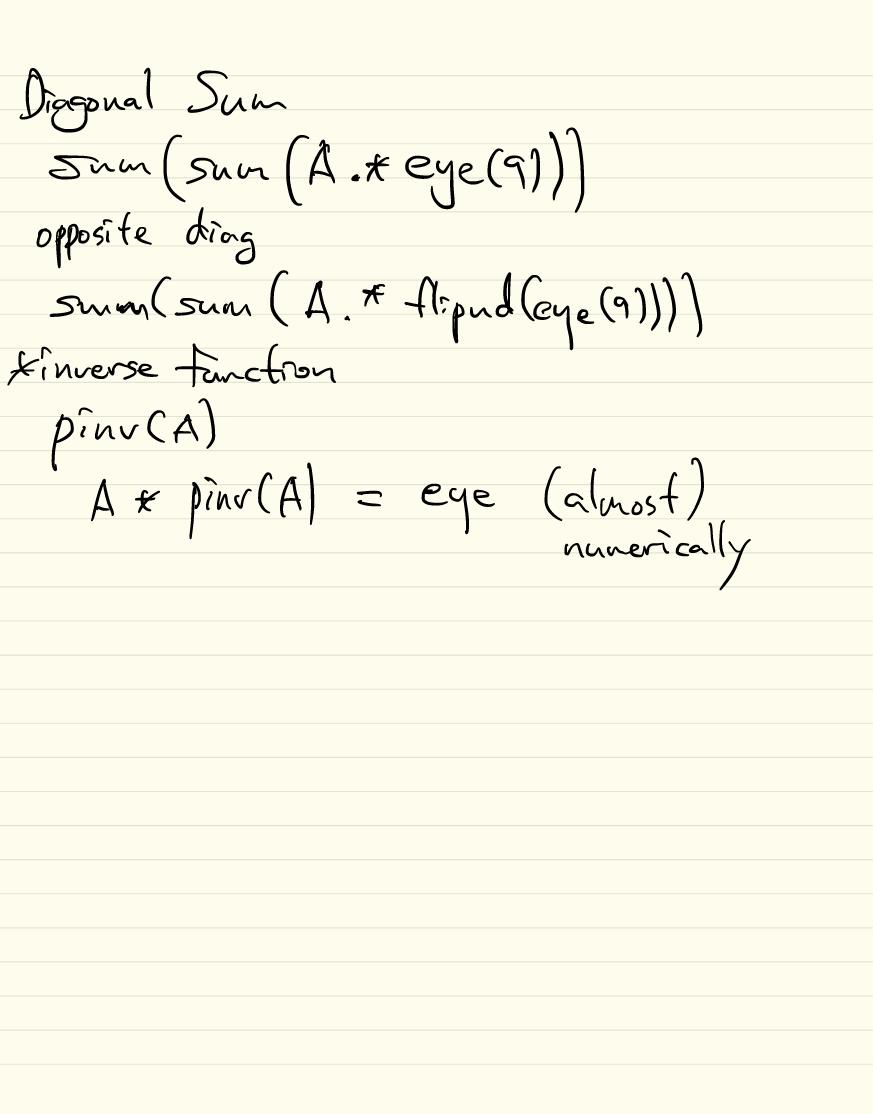 Diagonal Sum
sum(sum(A.* eye(9)))
opposite diag
sum(sum(A.* flipud(eye(9))))
*inverse function
pinv(A)
A * pinv(A) = eye (almost)
numerically